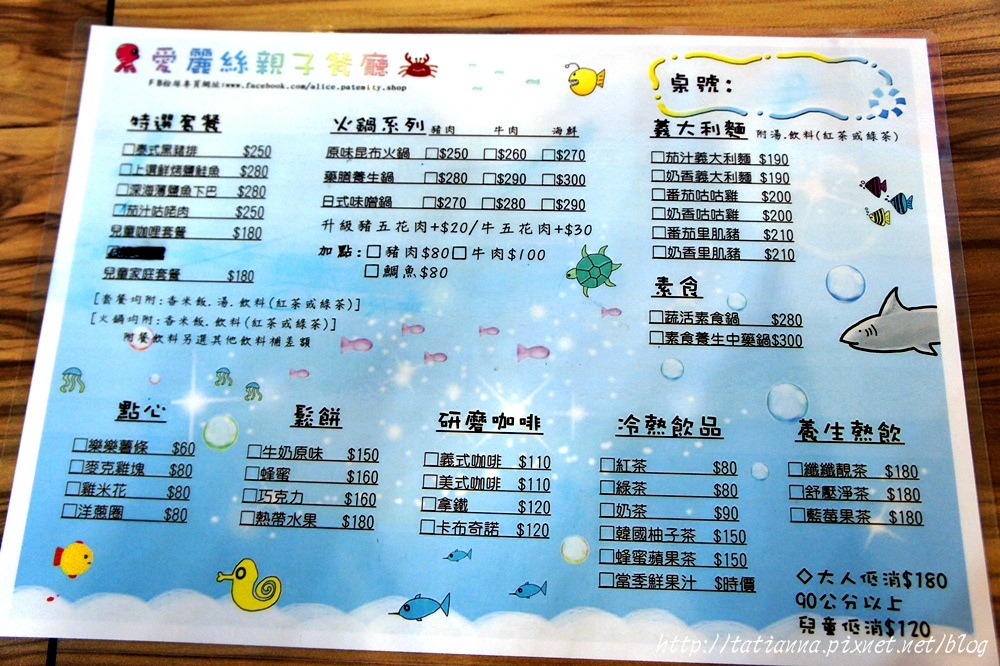 愛麗絲親子餐廳
FB粉絲專頁網址:www.facebook.com/alice.patemity.shop
桌號:
特選套餐
□泰式黑豬排 $250
□上選鮮烤鹽鮭魚 $280
□深海薄鹽魚下巴 $280
□茄汁咕咾肉 $250
兒童咖哩套餐 $180
兒童家庭套餐 $180
[套餐均附:香米飯.湯.飲料(紅茶或綠茶)]
[火鍋均附:香米飯.飲料(紅茶或綠茶)]
附餐飲料另選其他飲料補差額
火鍋系列 豬肉 牛肉 海鮮
原味昆布火鍋 □$250 □$260 □$270
藥膳養生鍋 □$280 □$290 □$300
日式味噌鍋 □$270 □$280 □$290
升級豬五花肉+$20/牛五花肉+$30
加點:□豬肉$80□牛肉$100
□鯛魚$80
義大利麵 附湯.飲料(紅茶或綠茶)
□茄汁義大利麵 $190
□奶香義大利麵 $190
□番茄咕咕雞 $200
□奶香咕咕雞 $200
□番茄里肌豬 $210
□奶香里肌豬 $210
素食
□蔬活素食鍋 $280
□素食養生中藥鍋$300
點心
□樂樂薯條 $60
□麥克雞塊 $80
□雞米花 $80
□洋蔥圈 $80
鬆餅
□牛奶原味 $150
□蜂蜜 $160
□巧克力 $160
□熱帶水果 $180
研磨咖啡
□義式咖啡 $110
□美式咖啡 $110
□拿鐵 $120
□卡布奇諾 $120
冷熱飲品
□紅茶 $80
□綠茶 $80
□奶茶 $90
□韓國柚子茶 $150
□蜂蜜蘋果茶 $150
□當季鮮果汁 $時價
養生熱飲
□纖纖靚茶 $180
□舒壓淨茶 $180
□藍莓果茶 $180
◇大人低消$180
90公分以上
兒童低消$120
http://tatianna.pixnet.net/blog